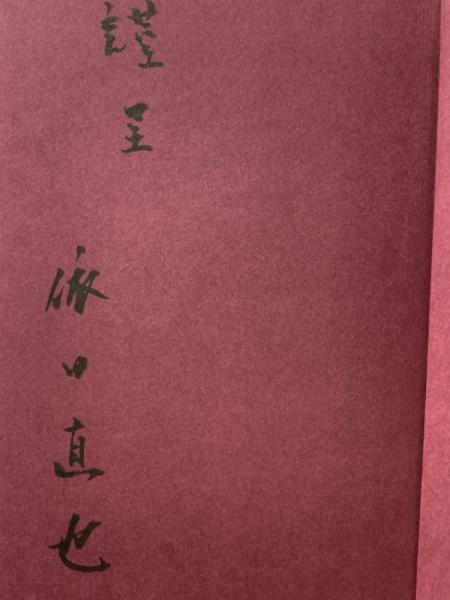 謹呈
依田直也